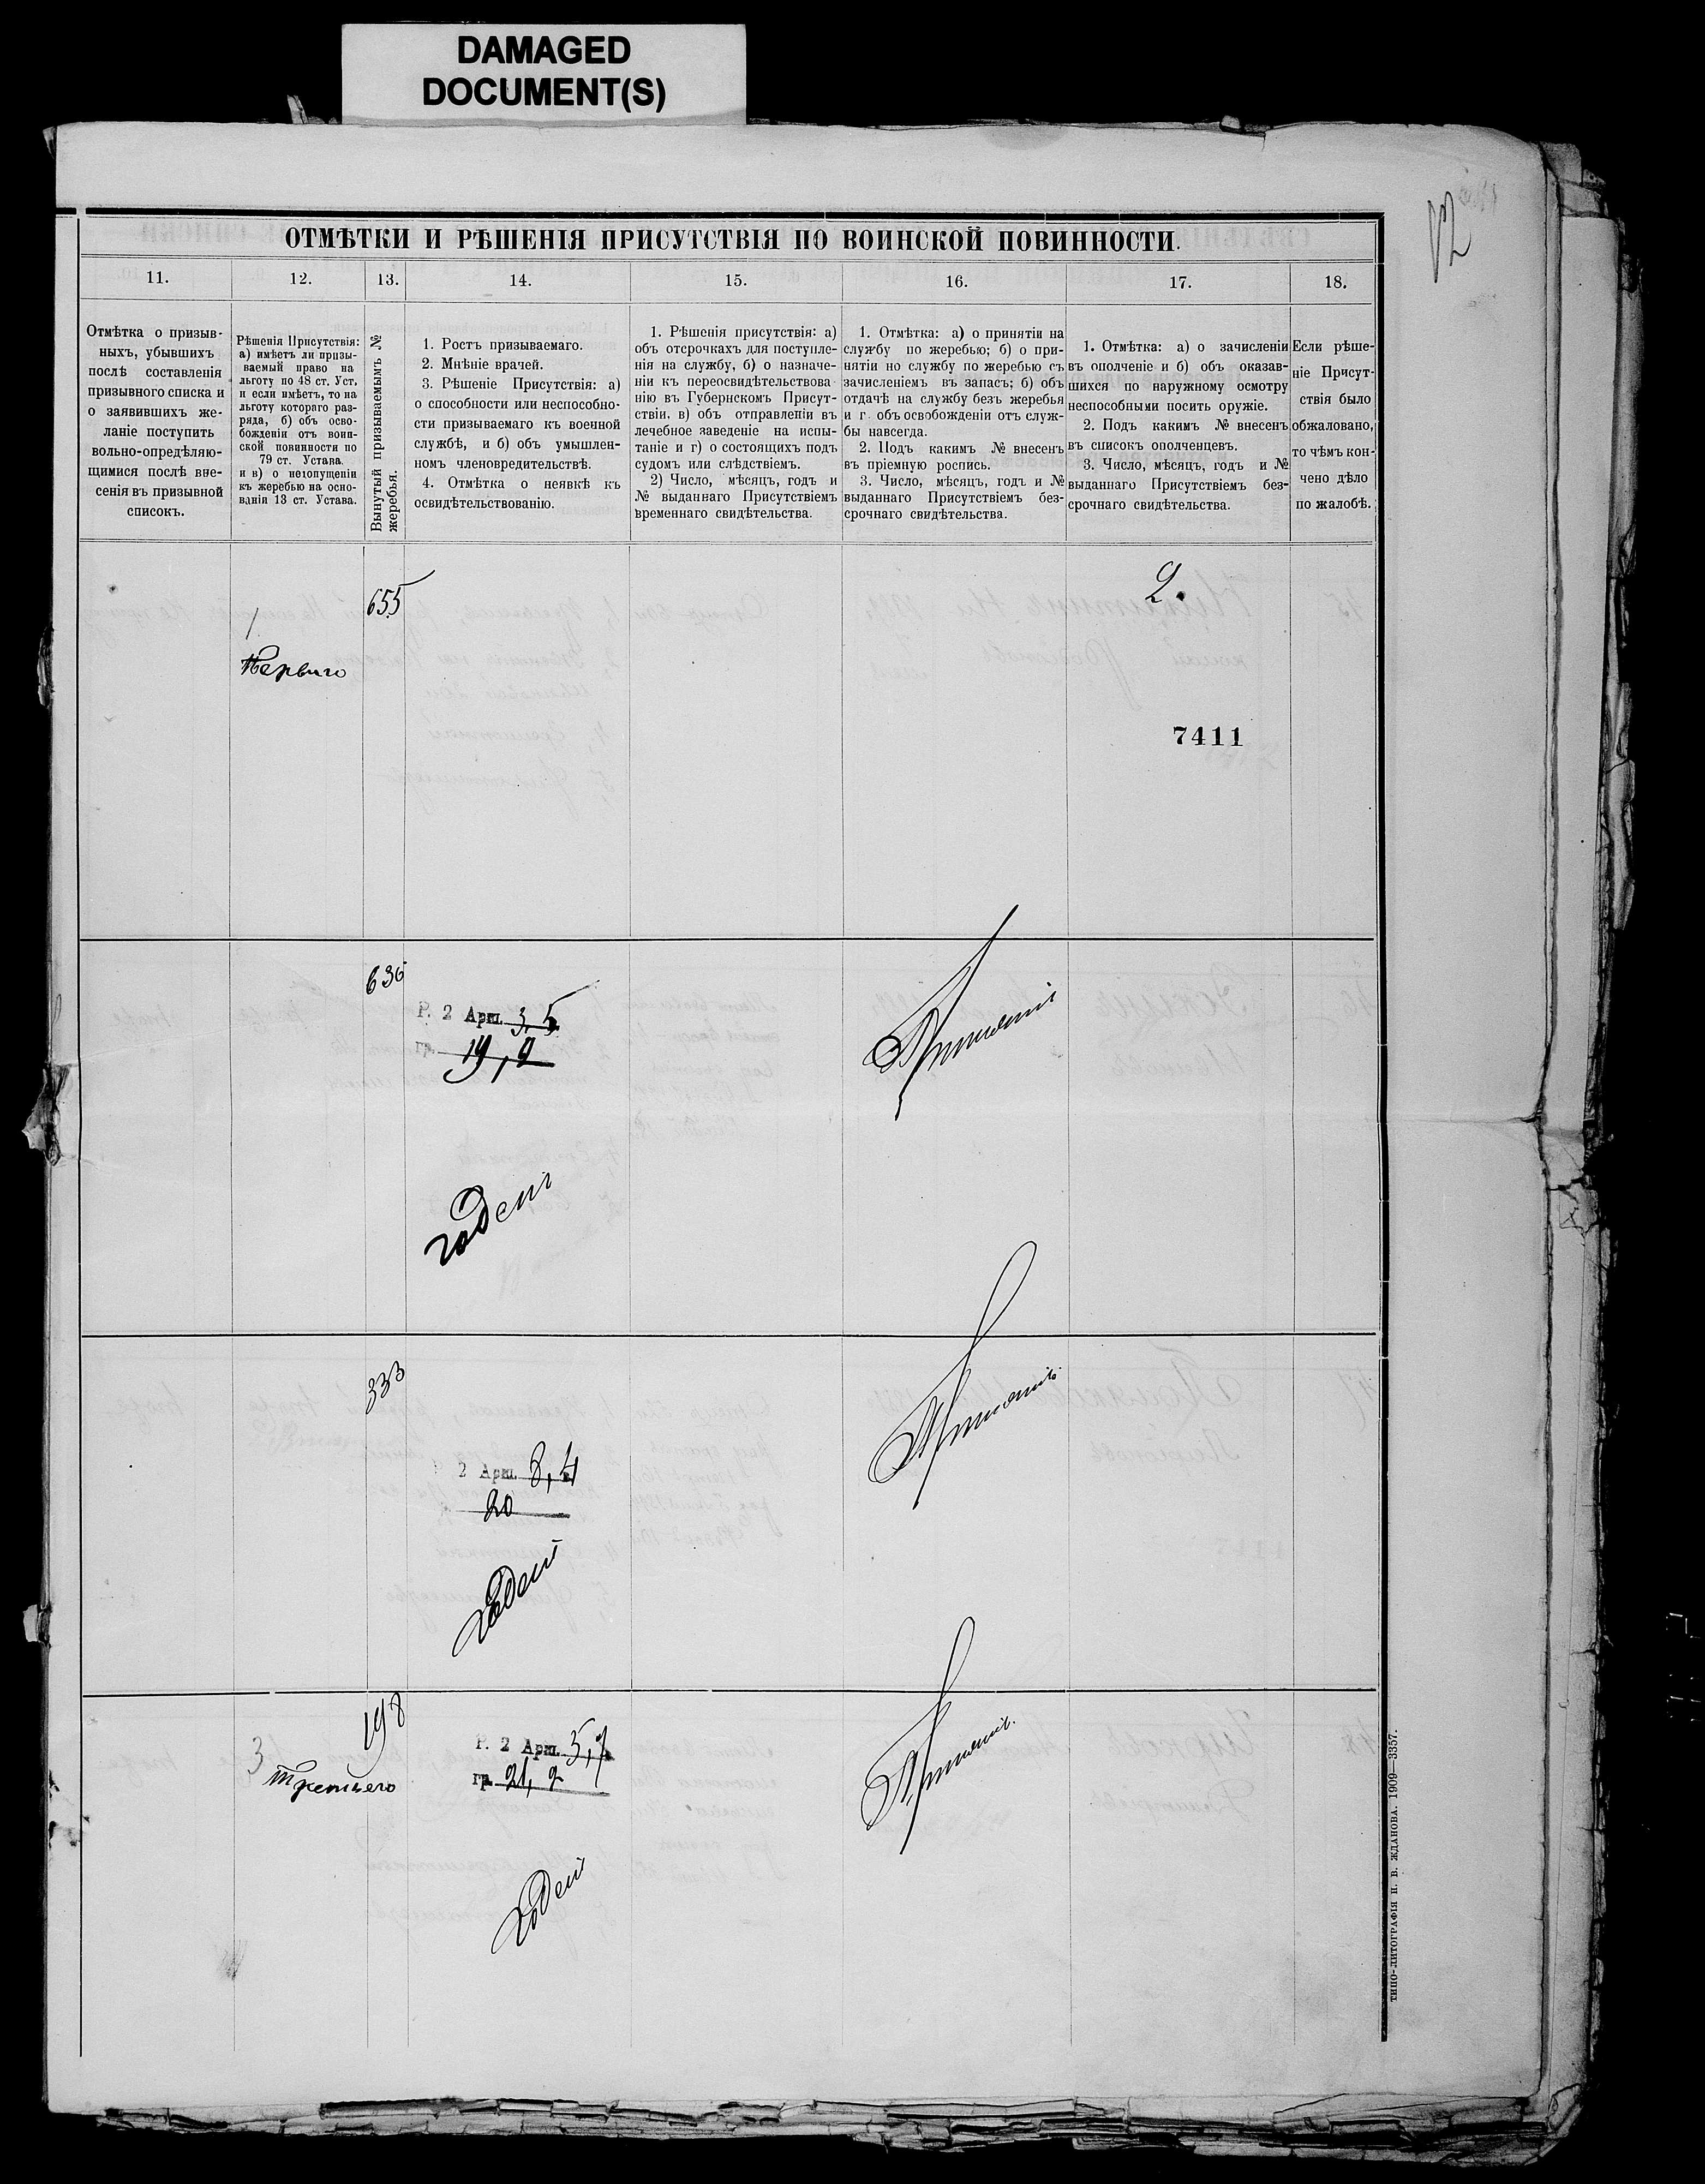 DAMAGED
DOCUMENT(S)
ОТМѢТКИ И РѢШЕНІЯ ПРИСУТСТВІЯ ПО ВОИНСКОЙ ПОВИННОСТИ.
11.
12.
13.
14.
15.
16.
17.
18.
Отмѣтка о призыв-
ныхъ, убывшихъ
послѣ составленія
призывного списка и
о заявившихъ же-
ланіе поступить
вольно-опредѣляю-
щимися послѣ вне-
сенія въ призывной
списокъ.
Рѣшенія Присутствія:
а) имѣетъ ли призы-
ваемый право на
льготу по 48 ст. Уст.
и если имѣетъ, то на
льготу котораго раз-
ряда, б) объ осво-
божденіи отъ воин-
ской повинности по
79 ст. Устава.
и в) о недопущеніи
къ жеребью на осно-
ваніи 13 ст. Устава.
Вынутый призываемымъ №
жеребья.
1. Ростъ призываемаго.
2. Мнѣніе врачей.
3. Рѣшеніе Присутствія: а)
о способности или неспособно-
сти призываемаго къ военной
службѣ, и б) объ умышлен-
номъ членовредительствѣ.
4. Отмѣтка о неявкѣ къ
освидѣтельствованію.
1. Рѣшенія присутствія: а)
объ отсрочкахъ для поступле-
нія на службу, б) о назначе-
ніи къ переосвидѣтельствова-
нію въ Губернскомъ Присут-
ствіи. в) объ отправленіи въ
лечебное заведеніе на испы-
таніе и г) о состоящихъ подъ
судомъ или слѣдствіемъ.
2) Число, мѣсяцъ, годъ и
№ выданнаго Присутствіемъ
временнаго свидѣтельства.
1. Отмѣтка: а) о принятіи на
службу по жеребью; б) о при-
нятіи но службу по жеребью съ
зачисленіемъ въ запасъ; б) объ
отдачѣ на службу безъ жеребья
и г. объ освобожденіи отъ служ-
бы навсегда.
2. Подъ какимъ № внесенъ
въ пріемную роспись.
3. Число, мѣсяцъ, годъ и №
выданнаго Присутствіемъ без-
срочнаго свидѣтельства.
1. Отмѣтка: а) о зачисленіи
въ ополченіе и б) объ оказав-
шихся по наружному осмотру
неспособными носить оружіе.
2. Подъ какимъ № внесенъ
въ списокъ ополченцевъ.
3. Число, мѣсяцъ, годъ и №
выданнаго Присутствіемъ без-
срочнаго свидѣтельства.
Если рѣше-
ніе Присут-
ствія было
обжаловано,
то чѣмъ кон-
чено дѣло
по жалобѣ.
655
1
Перваго
2.
7411
636
Р. 2 Арш. 3,5
гр. 19,2
годенъ
Принятъ
333
2 Арш. 3,4
20
Годенъ
Принятъ
198
3
третьего
Р. 2 Арш. 5,7
гр. 21,2
Годенъ
Принятъ
ТИПО-ЛИТОГРАФІЯ Н. В. ЖДАНОВА. 1909—3357.